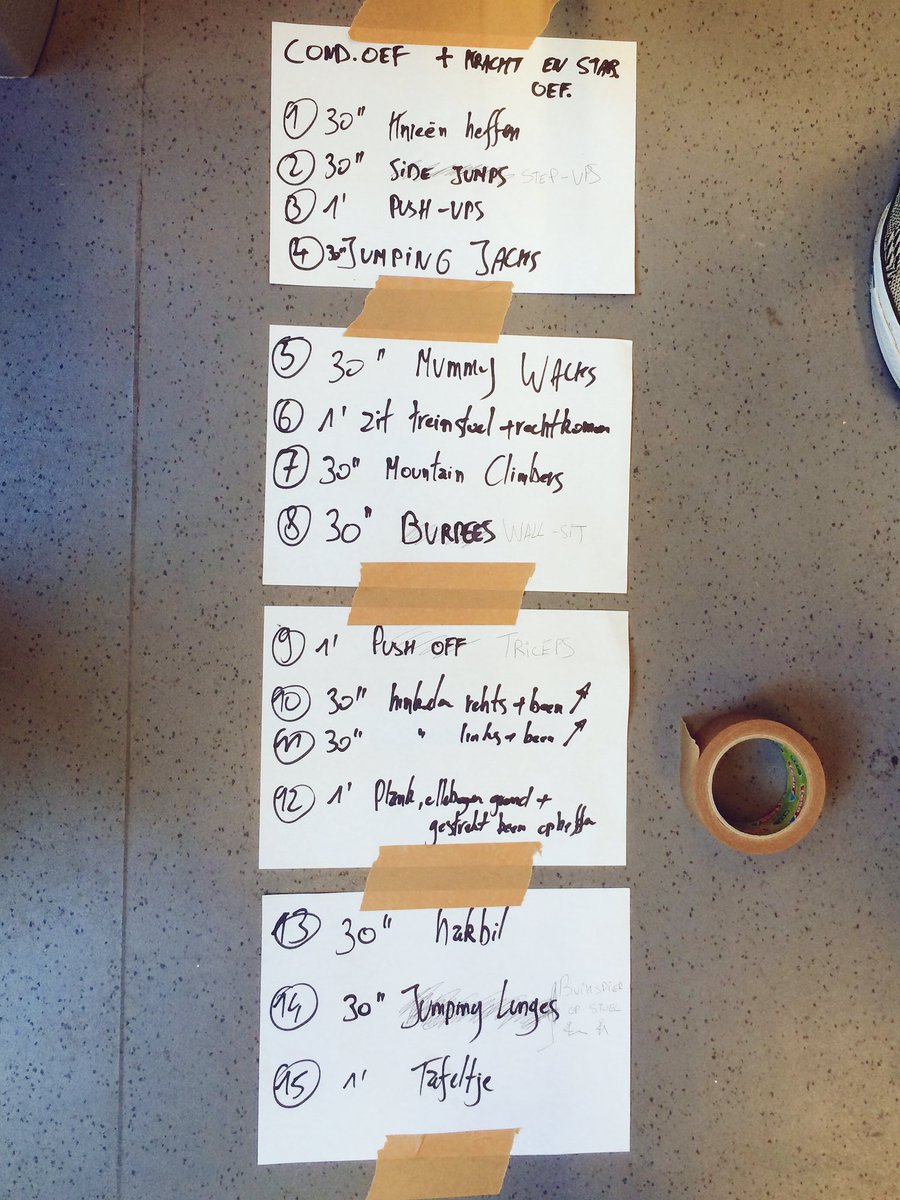 COND.OEF + KRACHT EN STAB
OEF.
1 30" Knieën heffen
2 30" SiDE JUMPS STEP-UPS
3 1' PUSH-UPS
4 30" JUMPiNG JACKS
5 30" Mummy WALKS
6 1' zit treinstoel + rechtkomen
7 30" Mountain Climbers
8 30" BURPEES WALL-SiT
9 1' PUSH OFF TRiCEPS
10 30" rechts + been ↗
11 30" " links + been ↗
12 1' Plank, ellebogen grond +
gestrekt been opheffen
13 30" hakbil
14 30" Jumping Lunges BUIKSPIER
OP STOEL
15 1' Tafeltje